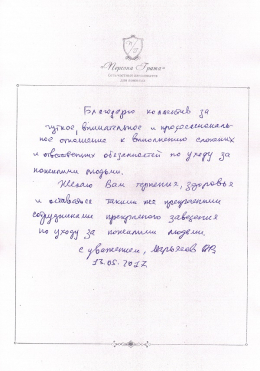 «Персона Грата»
Благодарю коллектив за
чуткое, внимательное и профессиональ-
ное отношение к выполнению сложных
и ответственных обязанностей по уходу за
пожилыми людьми.
Желаю Вам терпения, здоровья
и оставаться такими же прекрасными
сотрудниками прекрасного заведения
по уходу за пожилыми людьми.
С уважением,
12.05.2017